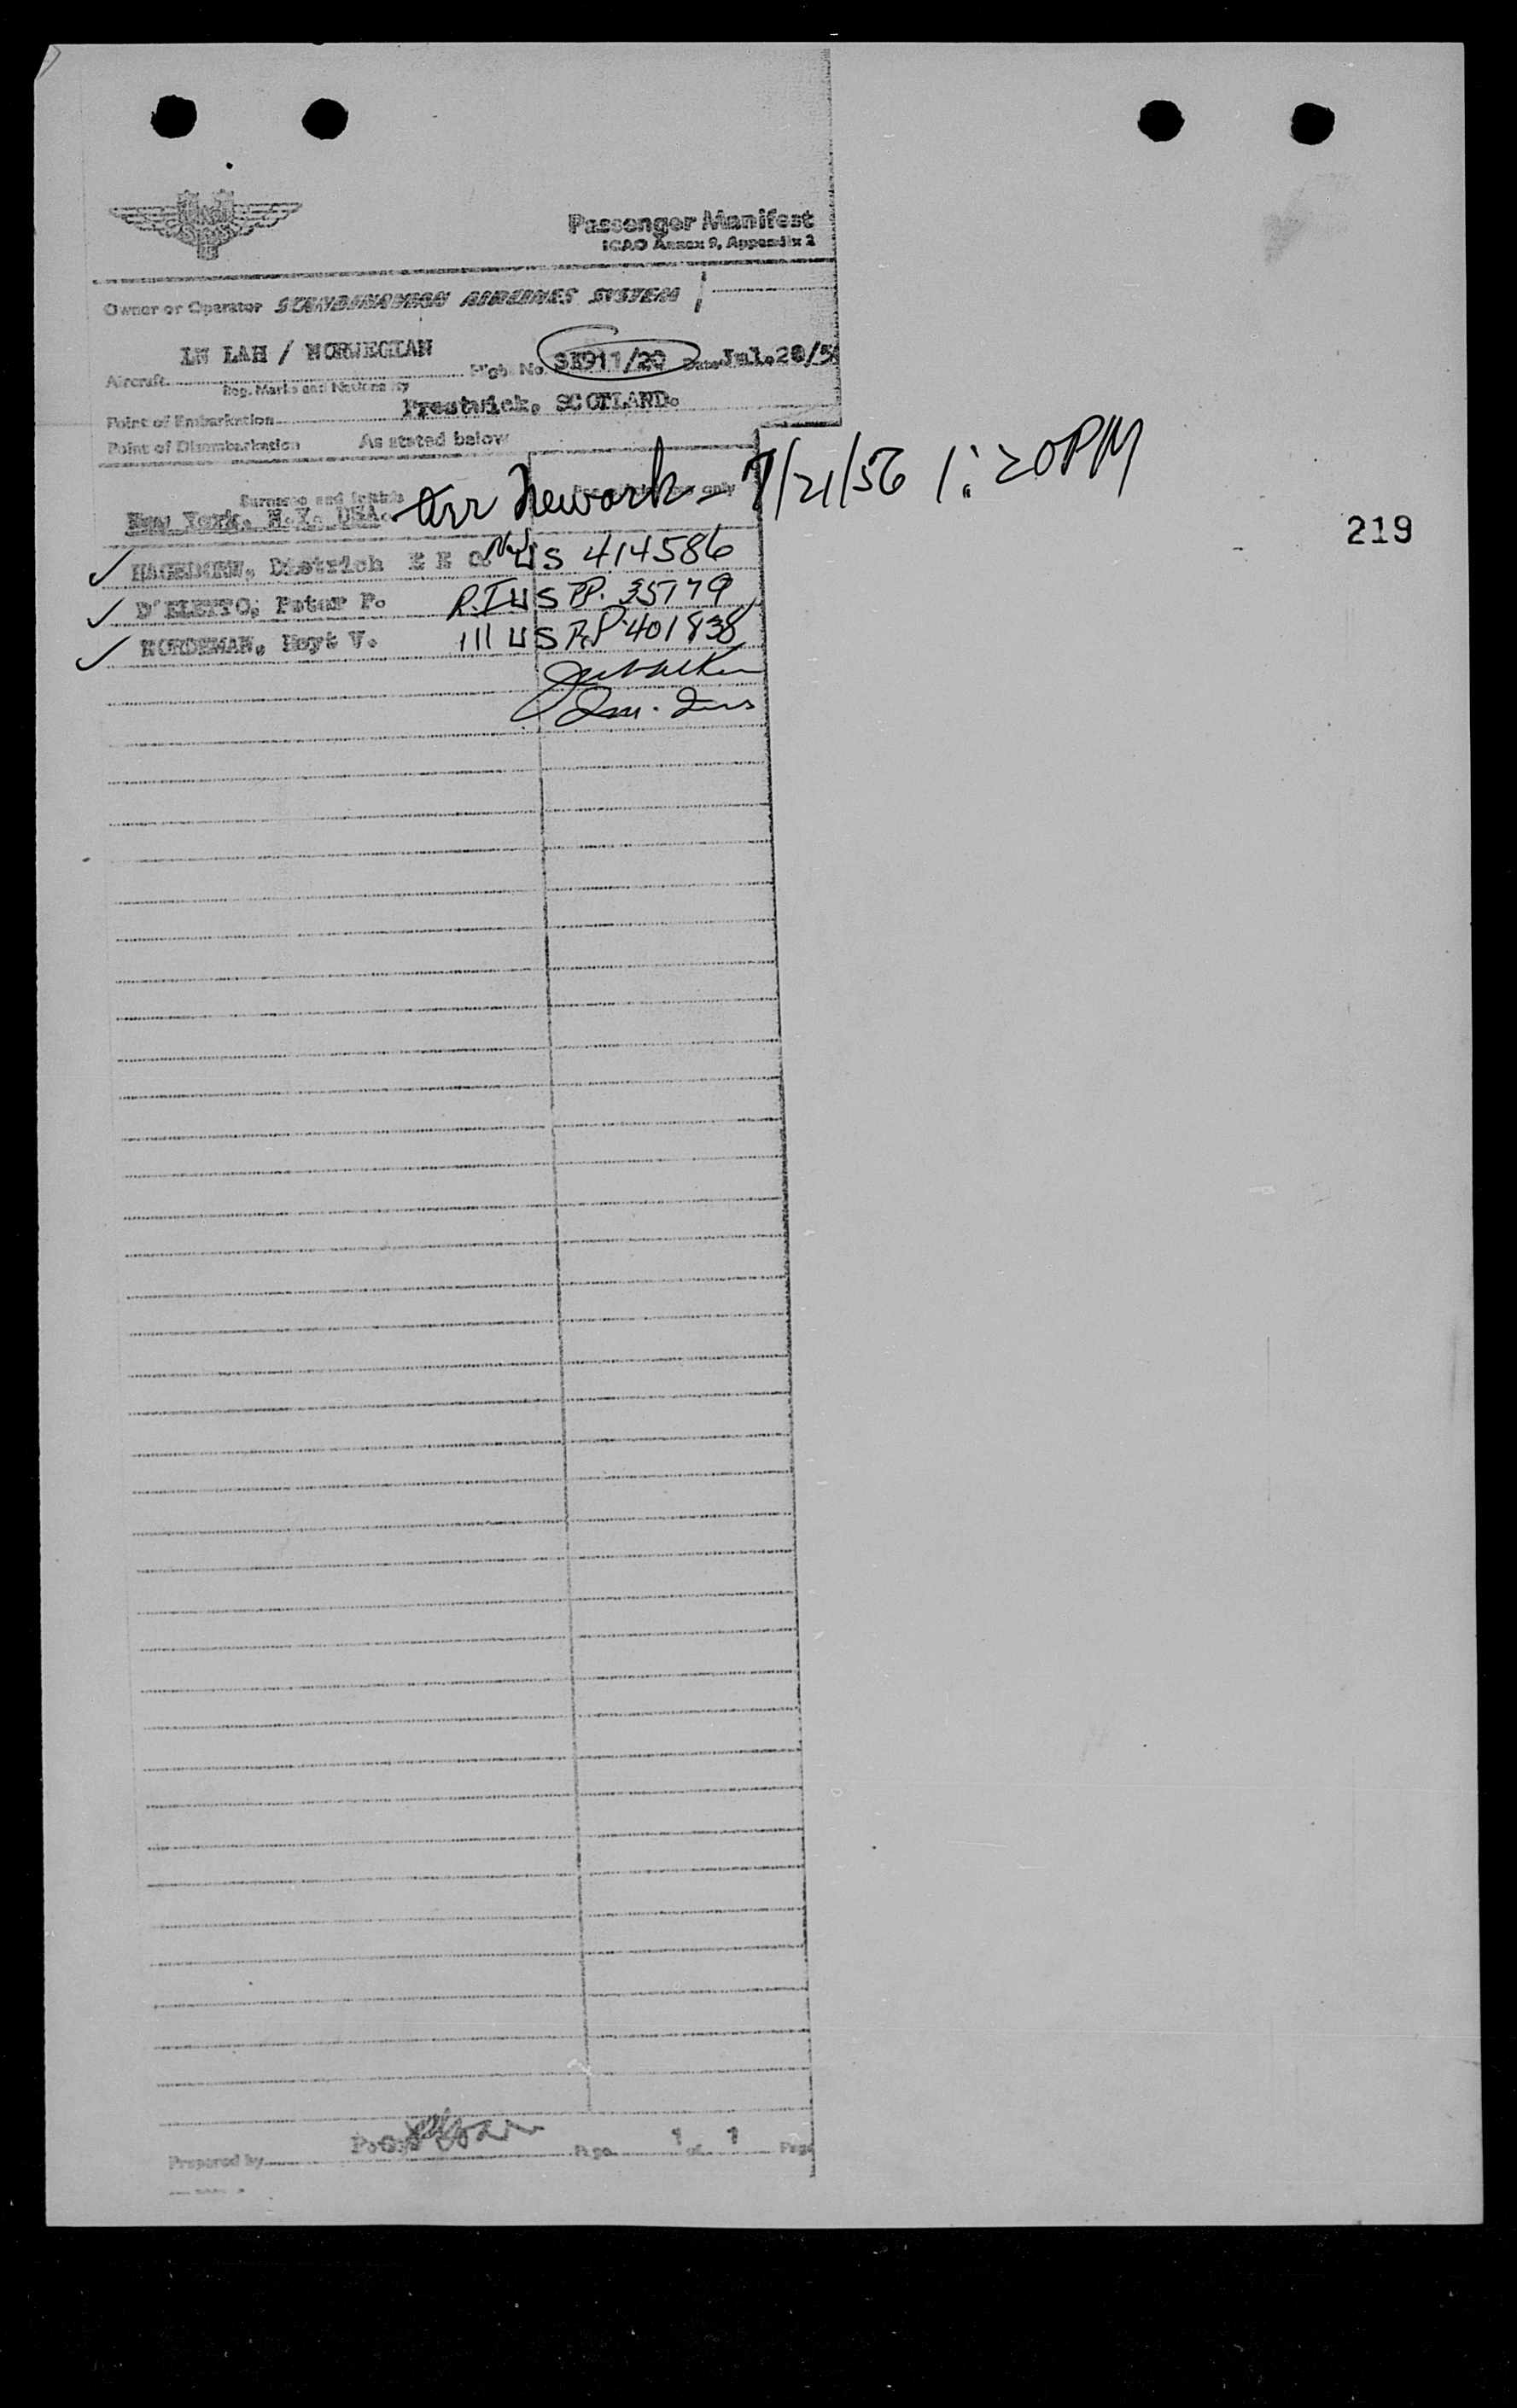 Passenger Manifest
ICAO Annex 9, Appendix 2
Owner or Operator SCANDINAVIAN AIRLINES SYSTEM
LN LAH / NORWEGIAN
Aircraft Flight No. SK911/20 Date Jul.20/5
Reg. Marks and Nationality
Point of Embarkation Prestwick, SCOTLAND.
Point of Disembarkation As stated below
Surnames and Initials only
New York, N.Y. USA. Arr Newark - 7/21/56 1:20PM
219
HAGEDORN, Dietrich US 414586
D'ELETTO, Peter P. R.I US PP. 35779
NORDEMAN, Hoyt V. Ill US PP 401838
Imm. Ins
Prepared by Page 1 of 1 Page